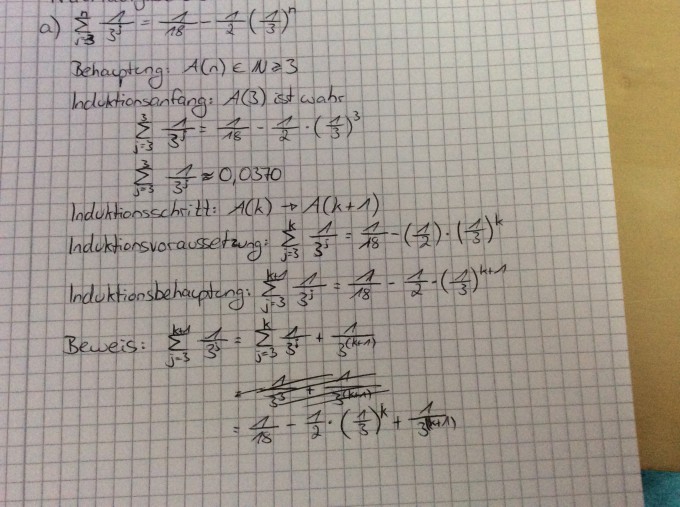 a) ∑_{j=3}^{n} 1/3^j = 1/18 - 1/2 (1/3)^n
Behauptung: A(n) ∈ N ≥ 3
Induktionsanfang: A(3) ist wahr
∑_{j=3}^{3} 1/3^j = 1/18 - 1/2 · (1/3)^3
∑_{j=3}^{3} 1/3^j ≈ 0,0370
Induktionsschritt: A(k) → A(k+1)
Induktionsvoraussetzung: ∑_{j=3}^{k} 1/3^j = 1/18 - (1/2) · (1/3)^k
Induktionsbehauptung: ∑_{j=3}^{k+1} 1/3^j = 1/18 - 1/2 · (1/3)^{k+1}
Beweis: ∑_{j=3}^{k+1} 1/3^j = ∑_{j=3}^{k} 1/3^j + 1/3^{(k+1)}
= 1/3^j + 1/3^{(k+1)}
= 1/18 - 1/2 · (1/3)^k + 1/3^{(k+1)}